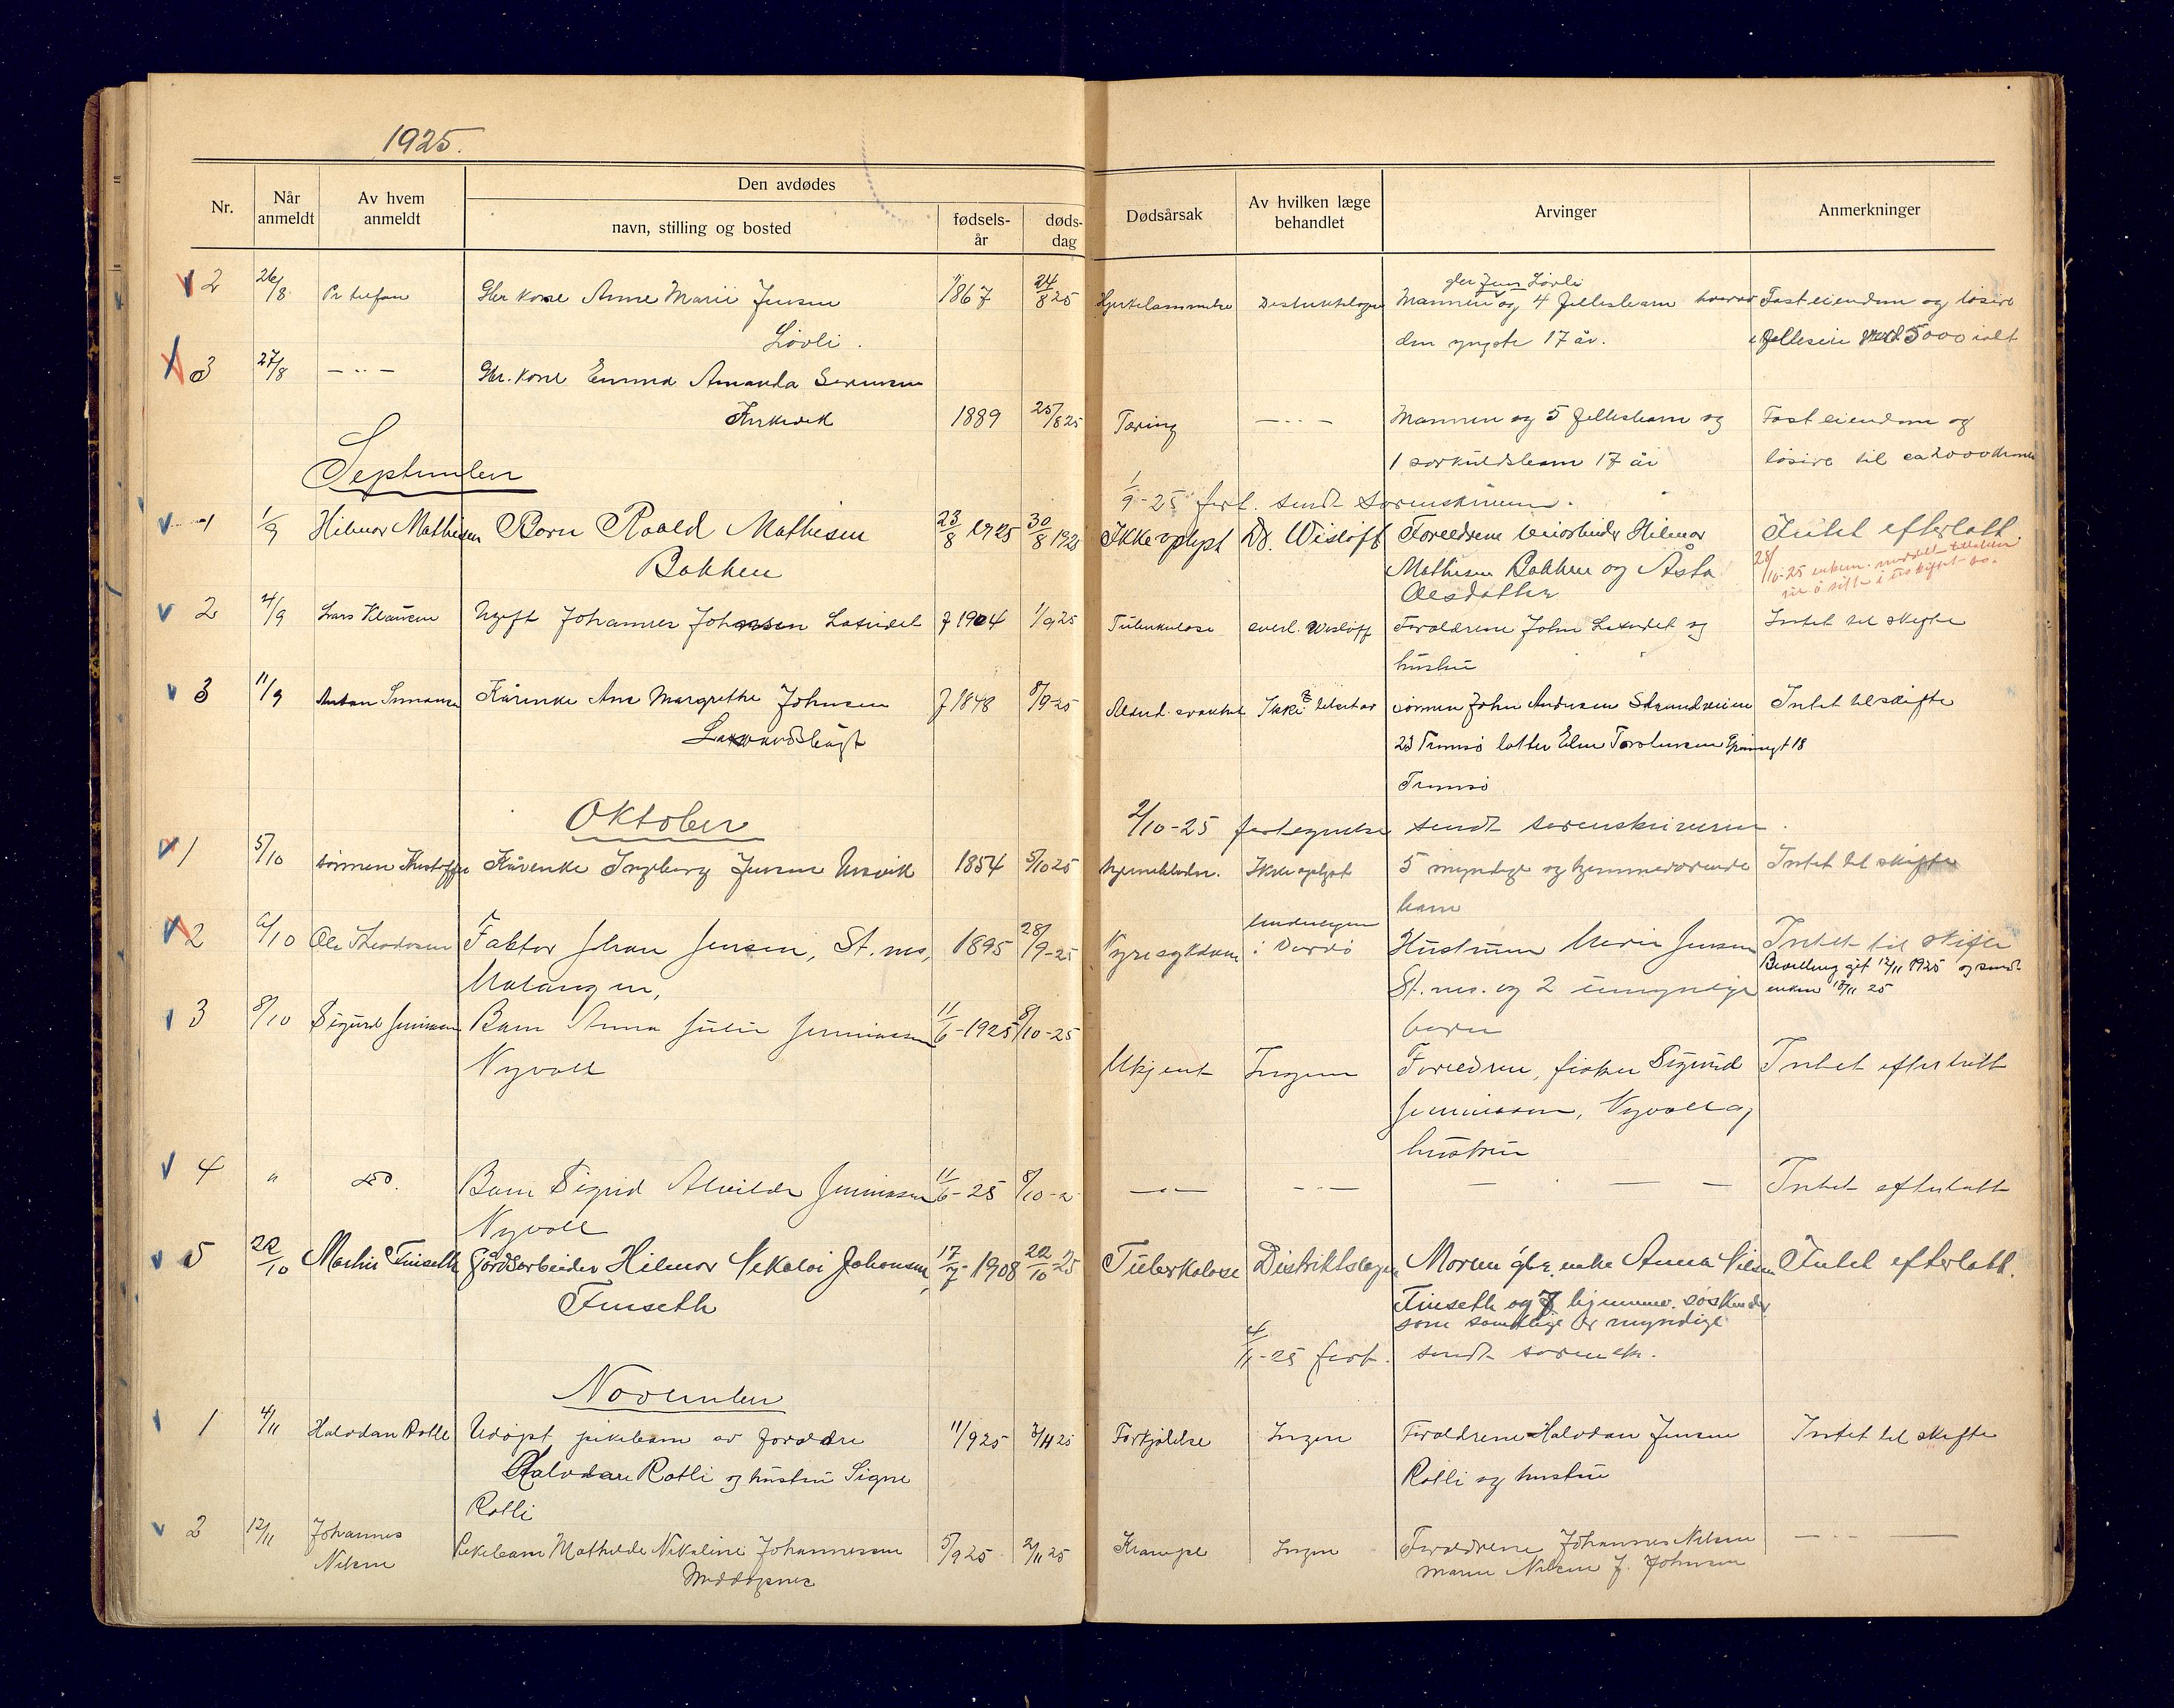 1925.
Nr.
Når anmeldt
Av hvem anmeldt
Den avdødes
navn, stilling og bosted
fødselsår
dødsdag
Dødsårsak
Av hvilken læge behandlet
Arvinger
Anmerkninger
2 26/8 Pr telefon Gbr kone Anne Marie Jensen 1867 24/8 25 Distriktslægen Mannen og 4 fellesbarn hvorav Fast eiendom og løsøre
gbr Jens Løvli
Løvli. den yngste 17 år. i felleseie 5000 ialt
3 27/8 — " — Gbr. kone Emma Amanda Sørensen
1889 25/8 25 Tæring — " — Mannen og 5 fellesbarn og Fast eiendom og
1 særkuldsbarn 17 år løsøre til ca 2000 kroner
September
1/9-25 fort. sendt sorenskriveren.
1 1/9 Hilmar Mathisen Barn Roald Mathisen 23/8 1925 30/8 1925 Ikke oplyst Dr. Wisløff Foreldrene Hilmar Intet efterlatt.
Bakken Mathisen Bakken og Åsta
Olesdatter
28/10-25
2 4/9 Lars Klausen Ugift Johannes Johansen f 1904 1/9 25 Tuberkulose Wisløff Foreldrene John og Intet til skifte
hustru
3 11/9 Kårenke Ane Margrethe Johnsen f 1848 8/9-25 Ikke sønnen John Andersen Strandveien Intet til skifte
23 Tromsø datter 18
Tromsø
Oktober
2/10-25 fortegnelse sendt sorenskriveren.
1 5/10 sønnen Kristoffer Kårenke Ingeborg Jensen 1854 5/10 25 Ikke oplyst 5 myndige og hjemmeværende Intet til skifte
barn
2 6/10 Ole Theodorsen Faktor Johan Jensen, St. nes, 1895 28/9-25 Nyresykdom i Vardø Hustruen Marie Jensen Intet til skifte
Malangen, St. nes. og 2 umyndige
Bevilling git 12/11 1925 og sendt
enken 12/11 25
barn
3 8/10 Sigurd Jeremiassen Barn Anna Julie Jeremiassen 11/6-1925 8/10-25
Nyvoll Ukjent Ingen Foreldrene, fisker Sigurd Intet efterlatt
Jeremiassen, Nyvoll og
hustru
4 " do. Barn Sigrid Alvilde Jeremiassen 11/6-25 8/10-2 — " — — " — — — — Intet efterlatt
Nyvoll
5 22/10 Martin Finseth Gårdsarbeider Hilmar Nikolai Johansen, 17/7-1908 22/10 25 Tuberkulose Distriktslægen Moren gbr. enke Anna Nilsen Intet efterlatt.
Finseth Finseth og 7 hjemmev. søskender
som samtlige er myndige
4/11-25 fort. sendt sorenskr.
November
1 4/11 Halvdan Rotli Udøpt pikebarn av foreldre 11/9 25 3/11 25 Forkjølelse Ingen Foreldrene Halvdan Jensen Intet til skifte
Halvdan Rotli og hustru Signe Rotli og hustru
Rotli
2 12/11 Johannes Pikebarn Mathilde Nikoline Johannessen 5/9 25 2/11 25 Krampe Ingen Foreldrene Johannes Nilsen — " —
Nilsen Middagsnes Marie Nilsen f. Johnsen